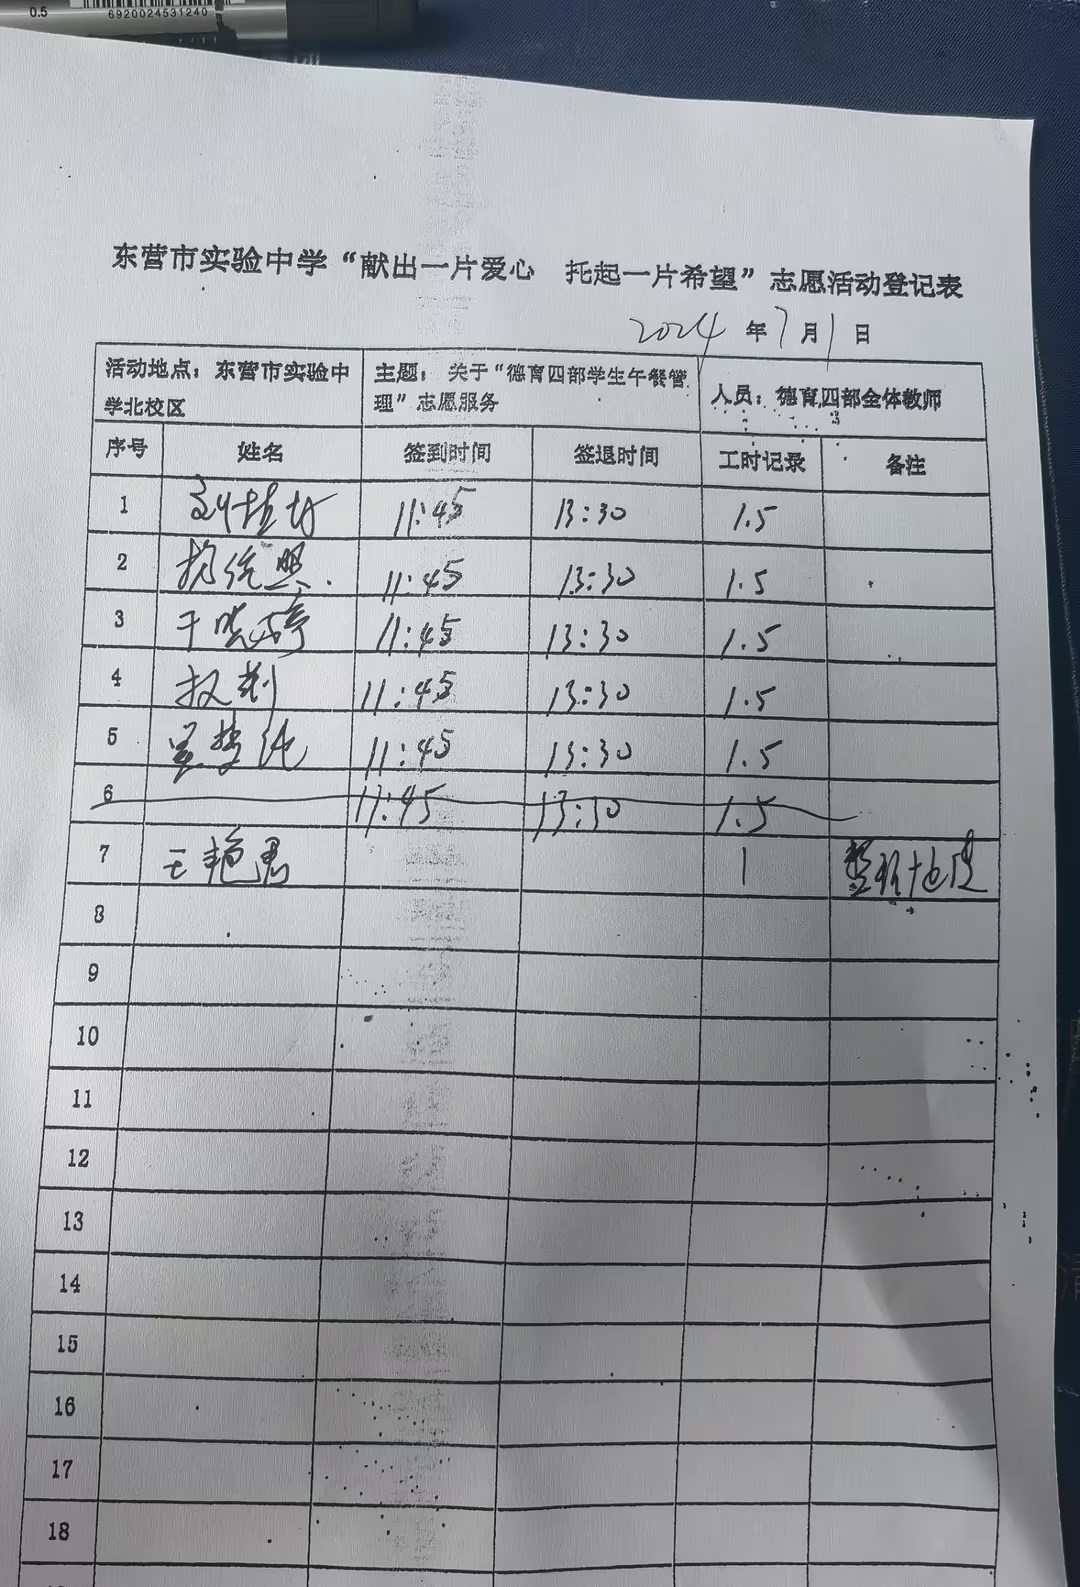 0.5
6920024531240
东营市实验中学“献出一片爱心 托起一片希望”志愿活动登记表
2024年7月1日
活动地点：东营市实验中学北校区 主题：关于“德育四部学生午餐管理”志愿服务 人员：德育四部全体教师
序号 姓名 签到时间 签退时间 工时记录 备注
1 11:45 13:30 1.5
2 11:45 13:30 1.5
3 于晓婷 11:45 13:30 1.5
4 11:45 13:30 1.5
5 11:45 13:30 1.5
6 11:45 13:30 1.5
7 王艳君 1 整理
8
9
10
11
12
13
14
15
16
17
18